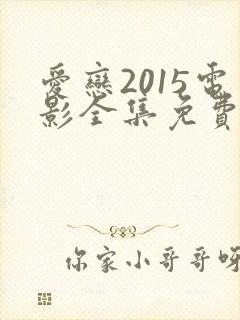 愛戀2015電
影全集免費
你家小哥哥呀